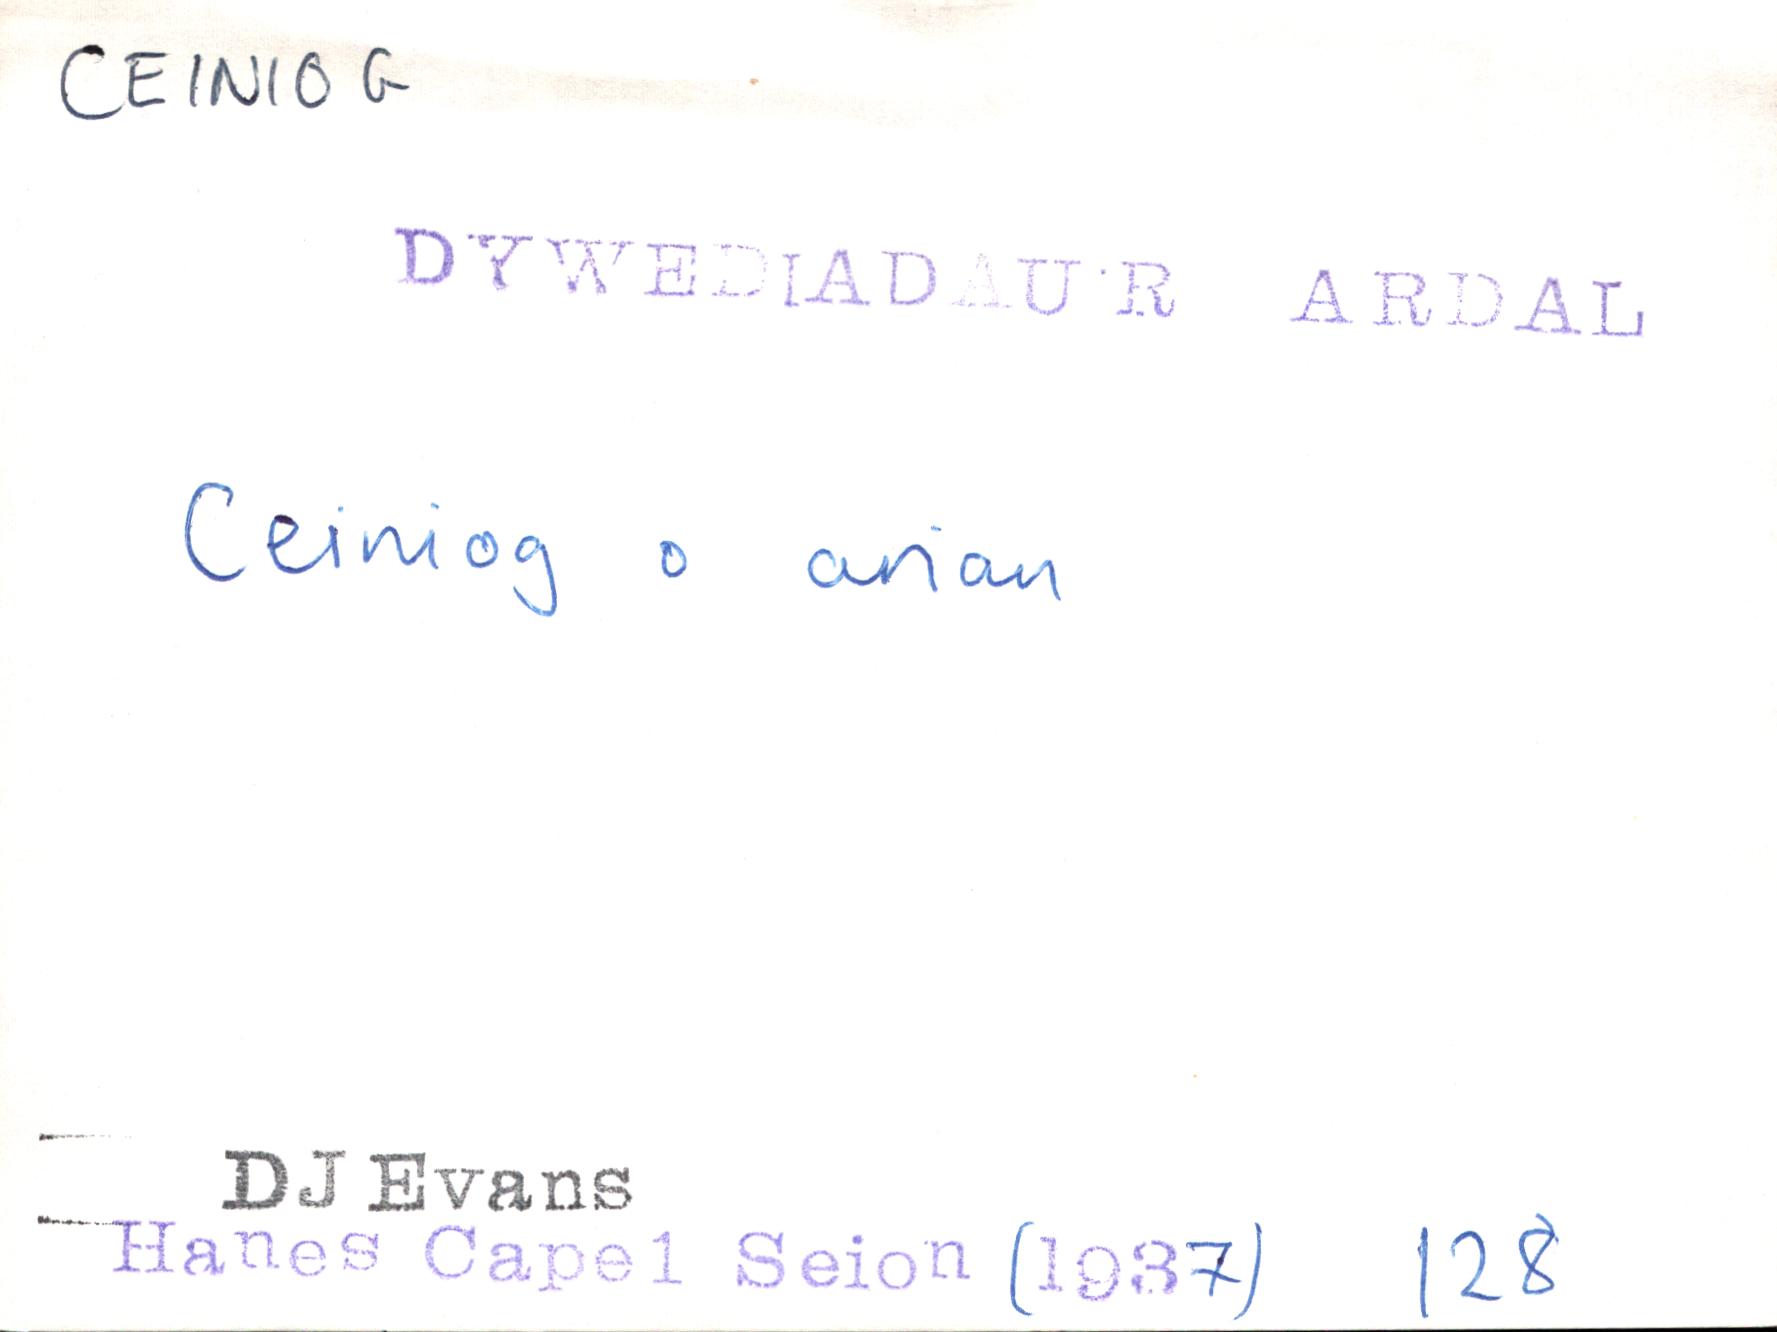 CEINIOG
DYWEDIADAU'R ARDAL
Ceiniog o arian
DJ Evans
Hanes Capel Seion (1937) 128